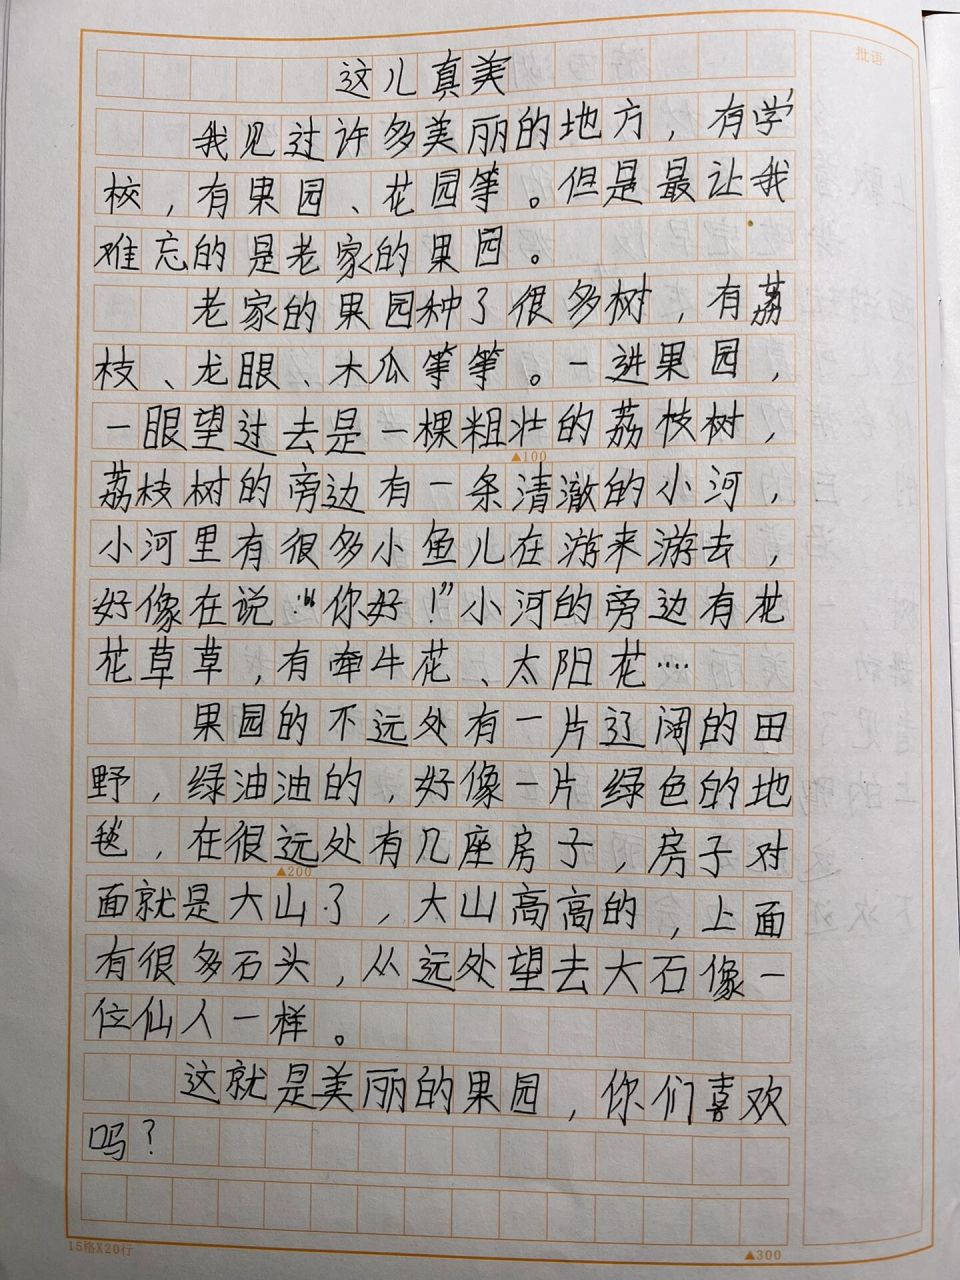 批语
这儿真美
我见过许多美丽的地方，有学
校，有果园、花园等。但是最让我
难忘的是老家的果园。
老家的果园种了很多树，有荔
枝、龙眼、木瓜等等。一进果园，
一眼望过去是一棵粗壮的荔枝树，
▲100
荔枝树的旁边有一条清澈的小河，
小河里有很多小鱼儿在游来游去，
好像在说：“你好！”小河的旁边有花
花草草，有牵牛花、太阳花…
果园的不远处有一片辽阔的田
野，绿油油的，好像一片绿色的地
毯，在很远处有几座房子，房子对
▲200
面就是大山了，大山高高的，上面
有很多石头，从远处望去大石像一
位仙人一样。
这就是美丽的果园，你们喜欢
吗？
15格X20行
▲300